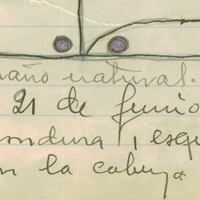 maño natural.
21 de junio
ondura, esqu
n la cabeza